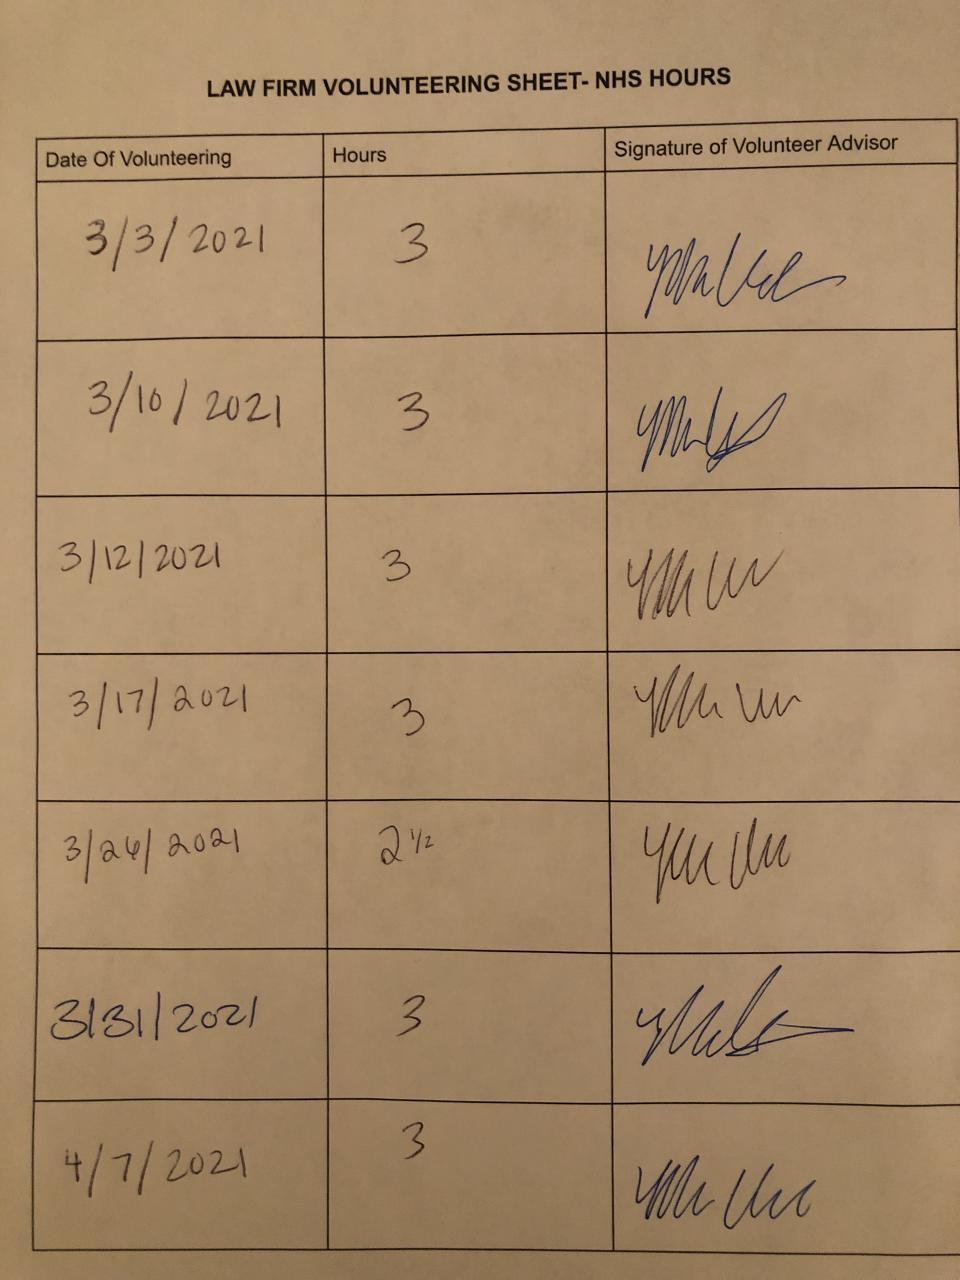 LAW FIRM VOLUNTEERING SHEET- NHS HOURS
Date Of Volunteering Hours Signature of Volunteer Advisor
3/3/2021 3
3/10/2021 3
3/12/2021 3
3/17/2021 3
3/26/2021 2 1/2
3/31/2021 3
4/7/2021 3